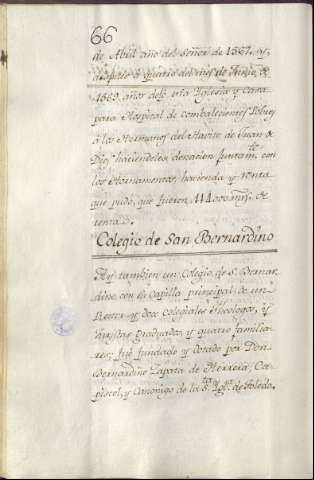 66
de Abril año del Señor de 1567, y
despues a quatro del mes de Junio de
1569, años dió esta Iglesia y Casa
para Hospital de combalecientes Pobres
a los Hermanos del Havito de Juan de
Dios haciendoles donacion juntamte. con
los Hornamentos, hacienda y renta
que pudo, que fueron 114.000 mrs. de
renta.
Colegio de San Bernardino
Ay tambien un Colegio de S. Bernar-
dino con su Capilla principal de un
Rector y doce colegiales theologos, y
Juristas graduados y quatro familia-
res; fué fundado y dotado por Don
Bernardino Zapata de Herrera, Ca-
piscol, y Canonigo de la Sta. Ygla. de Toledo.